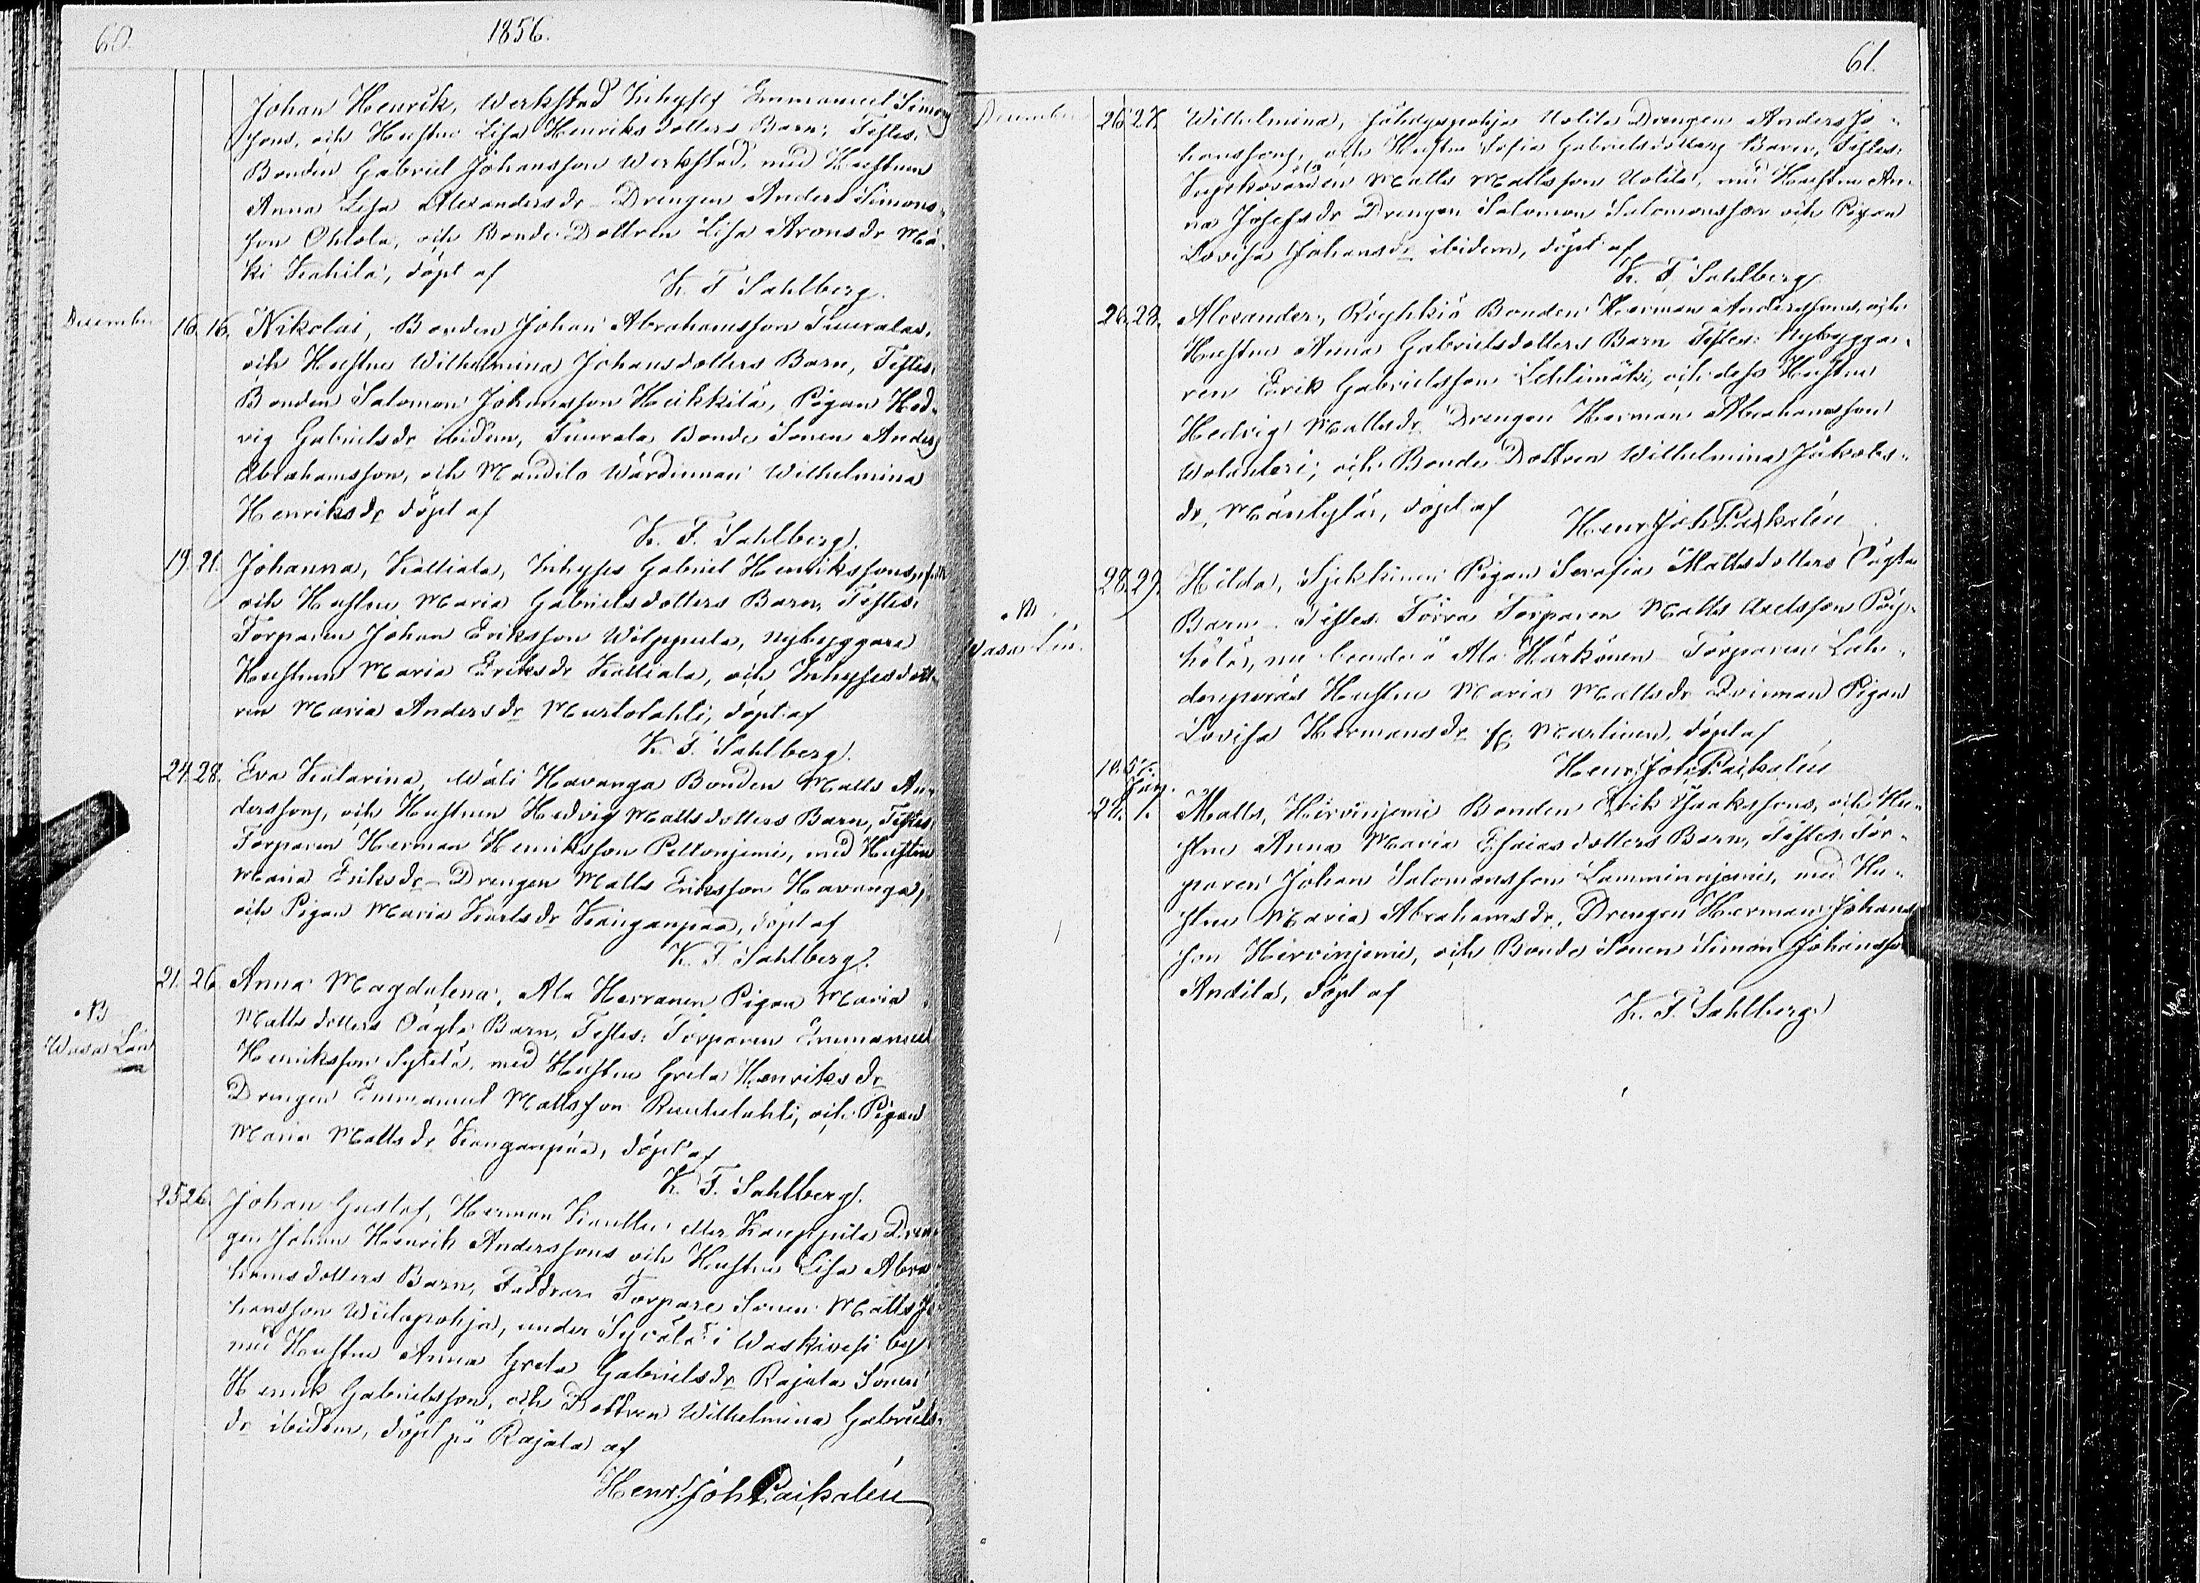 60.
1856.
Johan Henrik, Werkstad Inhyses Emmanuel Simons
sons, och Hustrun Lisa Henriksdotters Barn; Testes:
Bonden Gabriel Johansson Werkstad, med Hustrun
Anna Lisa Alexandersdr Drengen Anders Simons-
son Ohlola, och Bonde Dottren Lisa Aronsdr Mä-
ki Kahila, döpt af
K. F. Sahlberg.
December
16. 16. Nikolai, Bonden Johan Abrahamsson Tuuralas,
och Hustrun Wilhelmina Johansdotters Barn, Testes:
Bonden Salomon Johansson Heikkilä, Pigan Hed-
vig Gabrielsdr ibidem, Tuurala Bonde Sonen Anders
Abrahamsson, och Mandila Wärdinnan Wilhelmina
Henriksdr döpt af
K. F. Sahlberg.
19. 21. Johanna, Kattiala, Inhyses Gabriel Henrikssons,
och Hustrun Maria Gabrielsdotters Barn, Testes:
Torparen Johan Eriksson Wilppula, nybyggare
Hustrun Maria Eriksdr Kattiala, och Inhysesdott-
ren Maria Andersdr Murtolahti, döpt af
K. F. Sahlberg.
24. 28. Eva Katarina, Wäli Havanga Bonden Matts An-
derssons, och Hustrun Hedvig Mattsdotters Barn, Testes:
Torparen Herman Henriksson Peltoniemi, med Hustrun
Maria Eriksdr Drengen Matts Eriksson Havanga,
och Pigan Maria Karlsdr Kanganpää, döpt af
K. F. Sahlberg.
21. 26. Anna Magdalena, Ala Herranen Pigan Maria
NB
Wasa Län
Mattsdotters Oägta Barn, Testes: Torparen Emmanuel
Henriksson Sytelä, med Hustrun Greta Henriksdr
Drengen Emmanuel Mattsson Ruuhelahti, och Pigan
Maria Mattsdr Kanganpää, döpt af
K. F. Sahlberg.
25. 26. Johan Gustaf, Herman eller Drän-
gen Johan Henrik Anderssons och Hustrun Lisa Abra-
hamsdotters Barn, Faddrar: Torpare Sonen Matts Jo-
hansson under i Waskivesi by
med Hustrun Anna Greta Gabrielsdr Rajala Sonen
Henrik Gabrielsson, och Dottren Wilhelmina Gabriels-
dr ibidem, döpt på Rajala af
Henr. Joh. Paikalén
61.
December
26. 27. Wilhelmina, Uotila Drengen Anders Jo-
hanssons, och Hustrun Sofia Gabrielsdotters Barn, Testes:
Matts Mattsson Uotila, med Hustrun An-
na Josefsdr Drengen Salomon Salomonsson och Pigan
Lovisa Johansdr ibidem, döpt af
K. F. Sahlberg
26. 28. Alexander, Röyhkiö Bonden Herman Anderssons, och
Hustrun Anna Gabrielsdotters Barn Testes: Nybygga-
ren Erik Gabrielsson Lehtimäki, och dess Hustru
Hedvig Mattsdr, Drengen Herman Abrahamsson
Wolanteri, och Bonde Dottren Wilhelmina Jakobs-
dr, Mäntylä, döpt af
Henr. Joh. Paikalén
28. 29. Hilda, Pigan Serafia Mattsdotters Oägta
NB
Wasa Län.
Barn. Testes: Förra Torparen Matts Axelsson Pöy-
hölä, nu boende å Ala Härkönen Torparen
Hustrun Maria Mattsdr Pigan
Lovisa Hermansdr fr. Martinen, döpt af
Henr. Joh. Paikalén
18 57.
Jan.
28. 1. Matts, Hirviniemi Bonden Erik Isakssons, och Hu-
strun Anna Maria Esaiasdotters Barn, Testes: Tor-
paren Johan Salomonsson Lamminniemi, med Hu-
strun Maria Abrahamsdr, Drengen Herman Johans
son Hirviniemi, och Bonde Sonen Simon Johansson
Andila, döpt af
K. F. Sahlberg.